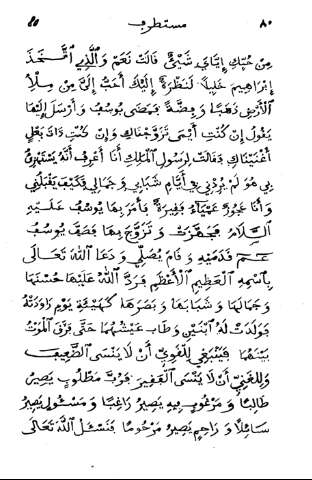 ٨٠ مستطرف 80
مِنْ حُبِّكَ إِيَّايَ شَيْئٌ قَالَتْ نَعَمْ وَالَّذِي اتَّخَذَ
إِبْرَاهِيمَ خَلِيلًا لَنَظْرَةٌ إِلَيْكَ أَحَبُّ إِلَيَّ مِنْ مِلْأِ
الْأَرْضِ ذَهَبًا وَفِضَّةً فَمَضَى يُوسُفُ وَأَرْسَلَ إِلَيْهَا
يَقُولُ إِنْ كُنْتِ أَيِّمًى تَزَوَّجْنَاكِ وَإِنْ كُنْتِ ذَاتَ بَعْلٍ
أَغْنَيْنَاكِ فَقَالَتْ لِرَسُولِ الْمَلِكِ أَنَا أَعْرِفُ أَنَّهُ يَسْتَهْزِئُ
بِي هُوَ لَمْ يُرِدْنِي فِي أَيَّامِ شَبَابِي وَجَمَالِي فَكَيْفَ يَقْبَلُنِي
وَأَنَا عَجُوزٌ عَمْيَاءُ فَقِيرَةٌ فَأَمَرَ بِهَا يُوسُفُ عَلَيْهِ
السَّلَامُ فَجُهِّزَتْ وَتَزَوَّجَ بِهَا فَصَفَّ يُوسُفُ
عم قَدَمَيْهِ وَقَامَ يُصَلِّي وَدَعَا اللّٰهَ تَعَالَى
بِاسْمِهِ الْعَظِيمِ الْأَعْظَمِ فَرَدَّ اللّٰهُ عَلَيْهَا حُسْنَهَا
وَجَمَالَهَا وَشَبَابَهَا وَبَصَرَهَا كَهَيْئَةِ يَوْمَ رَاوَدَتْهُ
فَوَلَدَتْ لَهُ ابْنَيْنِ وَطَابَ عَيْشُهُمَا حَتَّى فَرَّقَ الْمَوْتُ
بَيْنَهُمَا فَيَنْبَغِي لِلْقَوِيِّ أَنْ لَا يَنْسَى الضَّعِيفَ
وَلِلْغَنِيِّ أَنْ لَا يَنْسَى الْفَقِيرَ فَرُبَّ مَطْلُوبٍ يَصِيرُ
طَالِبًا وَمَرْغُوبٍ فِيهِ يَصِيرُ رَاغِبًا وَمَسْئُولٍ يَصِيرُ
سَائِلًا وَرَاحِمٍ يَصِيرُ مَرْحُومًا فَنَسْئَلُ اللّٰهَ تَعَالَى